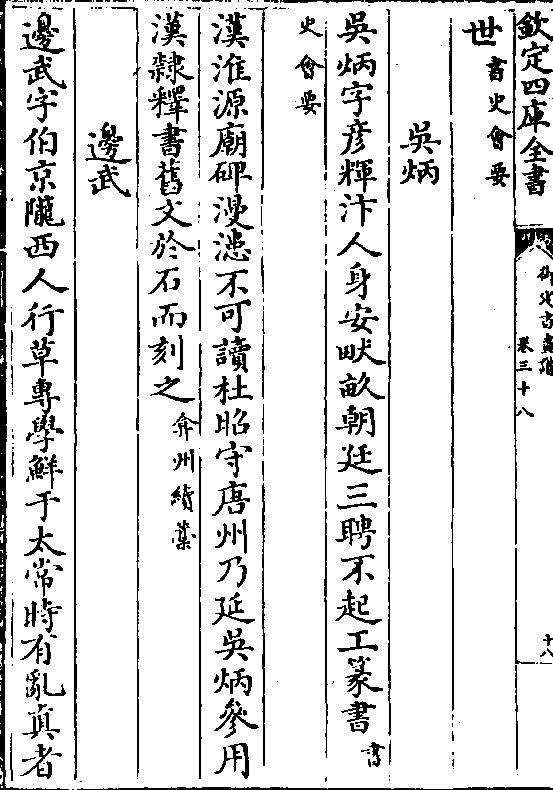 欽定四庫全書
御定書畫譜
卷三十八
十八
世書史會要
吳炳
吳炳字彦輝汴人身安畎畝朝廷三聘不起工篆書書
史會要
漢淮源廟碑漫漶不可讀杜昭守唐州乃延吳炳參用
漢隸釋書舊文於石而刻之弇州續藁
邊武
邊武字伯京隴西人行草專學鮮于太常時有亂眞者